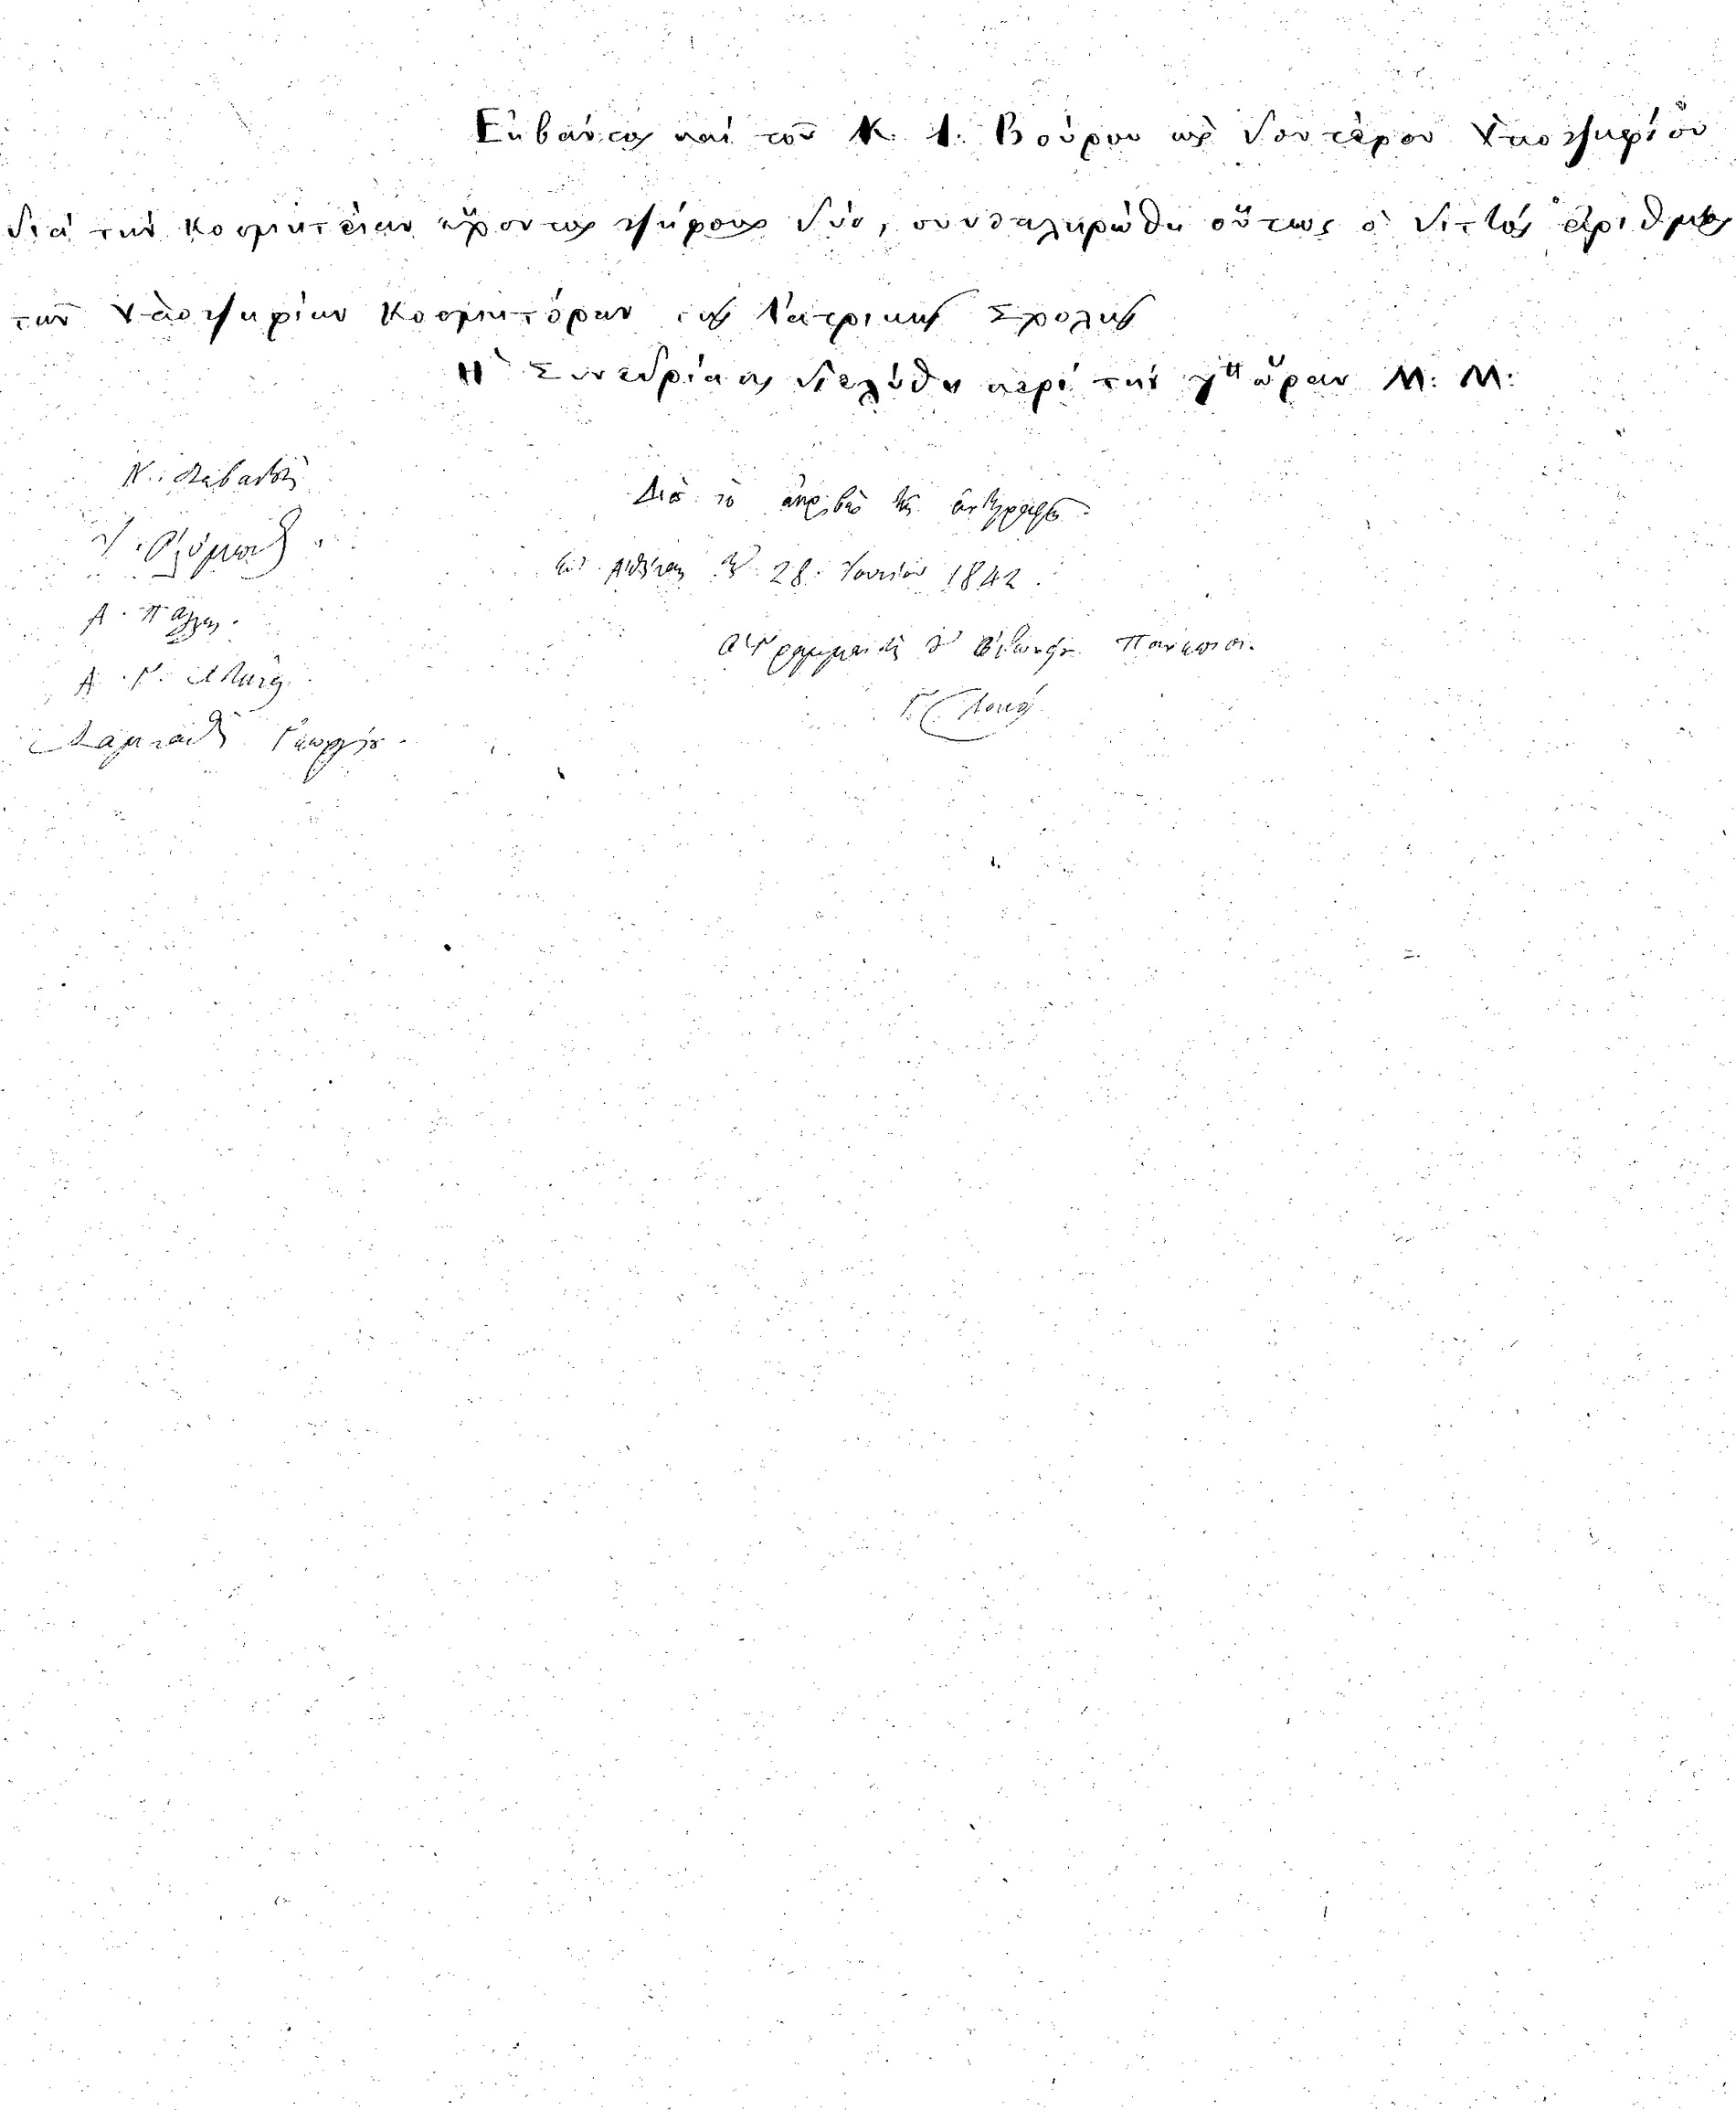 Ἐκβάντος καὶ τοῦ Κ. Ι. Βούρου ὡς δευτέρου Ὑποψηφίου
διὰ τὴν Κοσμητείαν ἔχοντος ψήφους δύο, συνεπληρώθη οὕτως ὁ διττὸς ἀριθμὸς
τῶν Ὑποψηφίων Κοσμητόρων τῆς Ἰατρικῆς Σχολῆς
Ἡ Συνεδρίασις διελύθη περὶ τὴν ὥραν Μ: Μ:
Ι. Ὀλύμπιος
Α. Πάλλης.
Δαμιανὸς Γεωργίου.
Διὰ τὸ ἀκριβὲς τῆς ἀντιγραφῆς
Ἐν Ἀθήναις τῇ 28 Ἰουνίου 1842.
Ὁ Γραμματεὺς τοῦ Πανεπισ.